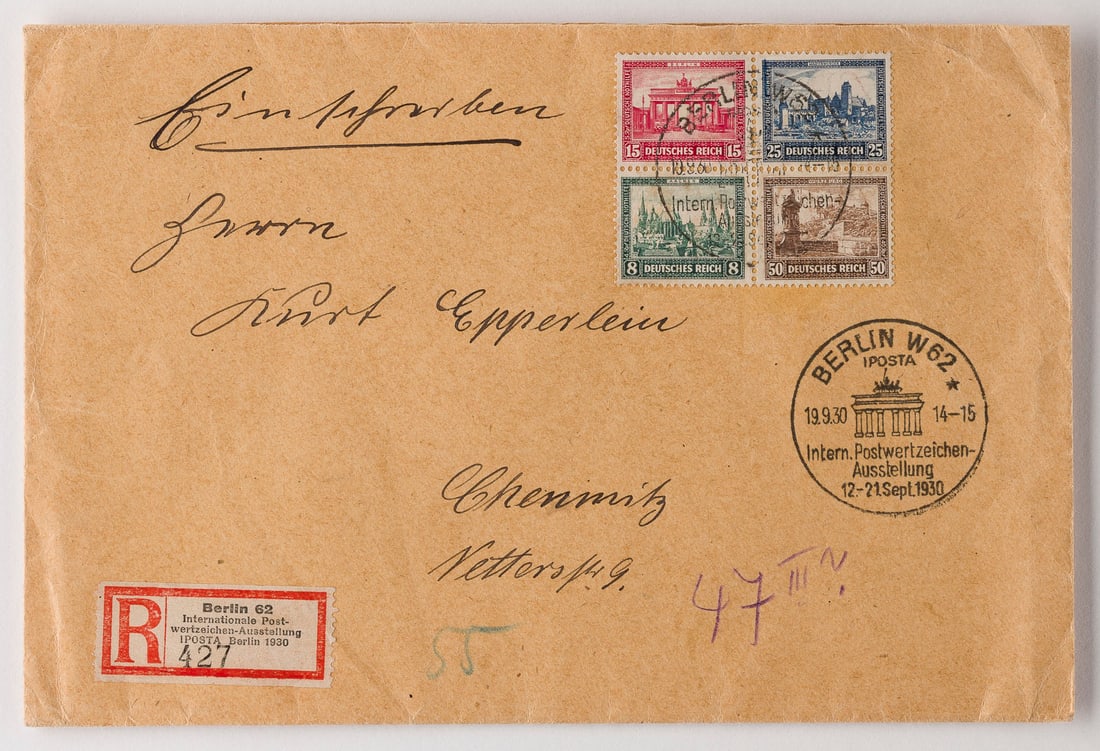 Einschreiben
Herrn
Kurt Epperlein
Chemnitz
Vettersstr 9.
BERLIN
15 DEUTSCHES REICH 15
25 DEUTSCHES REICH 25
AACHEN
8 DEUTSCHES REICH 8
WÜRZBURG
50 DEUTSCHES REICH 50
BERLIN W62
19.9.30
Intern. Postwertzeichen-
BERLIN W62
IPOSTA
19.9.30 14-15
Intern. Postwertzeichen-
Ausstellung
12.-21.Sept.1930
R
Berlin 62
Internationale Post-
wertzeichen-Ausstellung
IPOSTA Berlin 1930
427
55
47 III